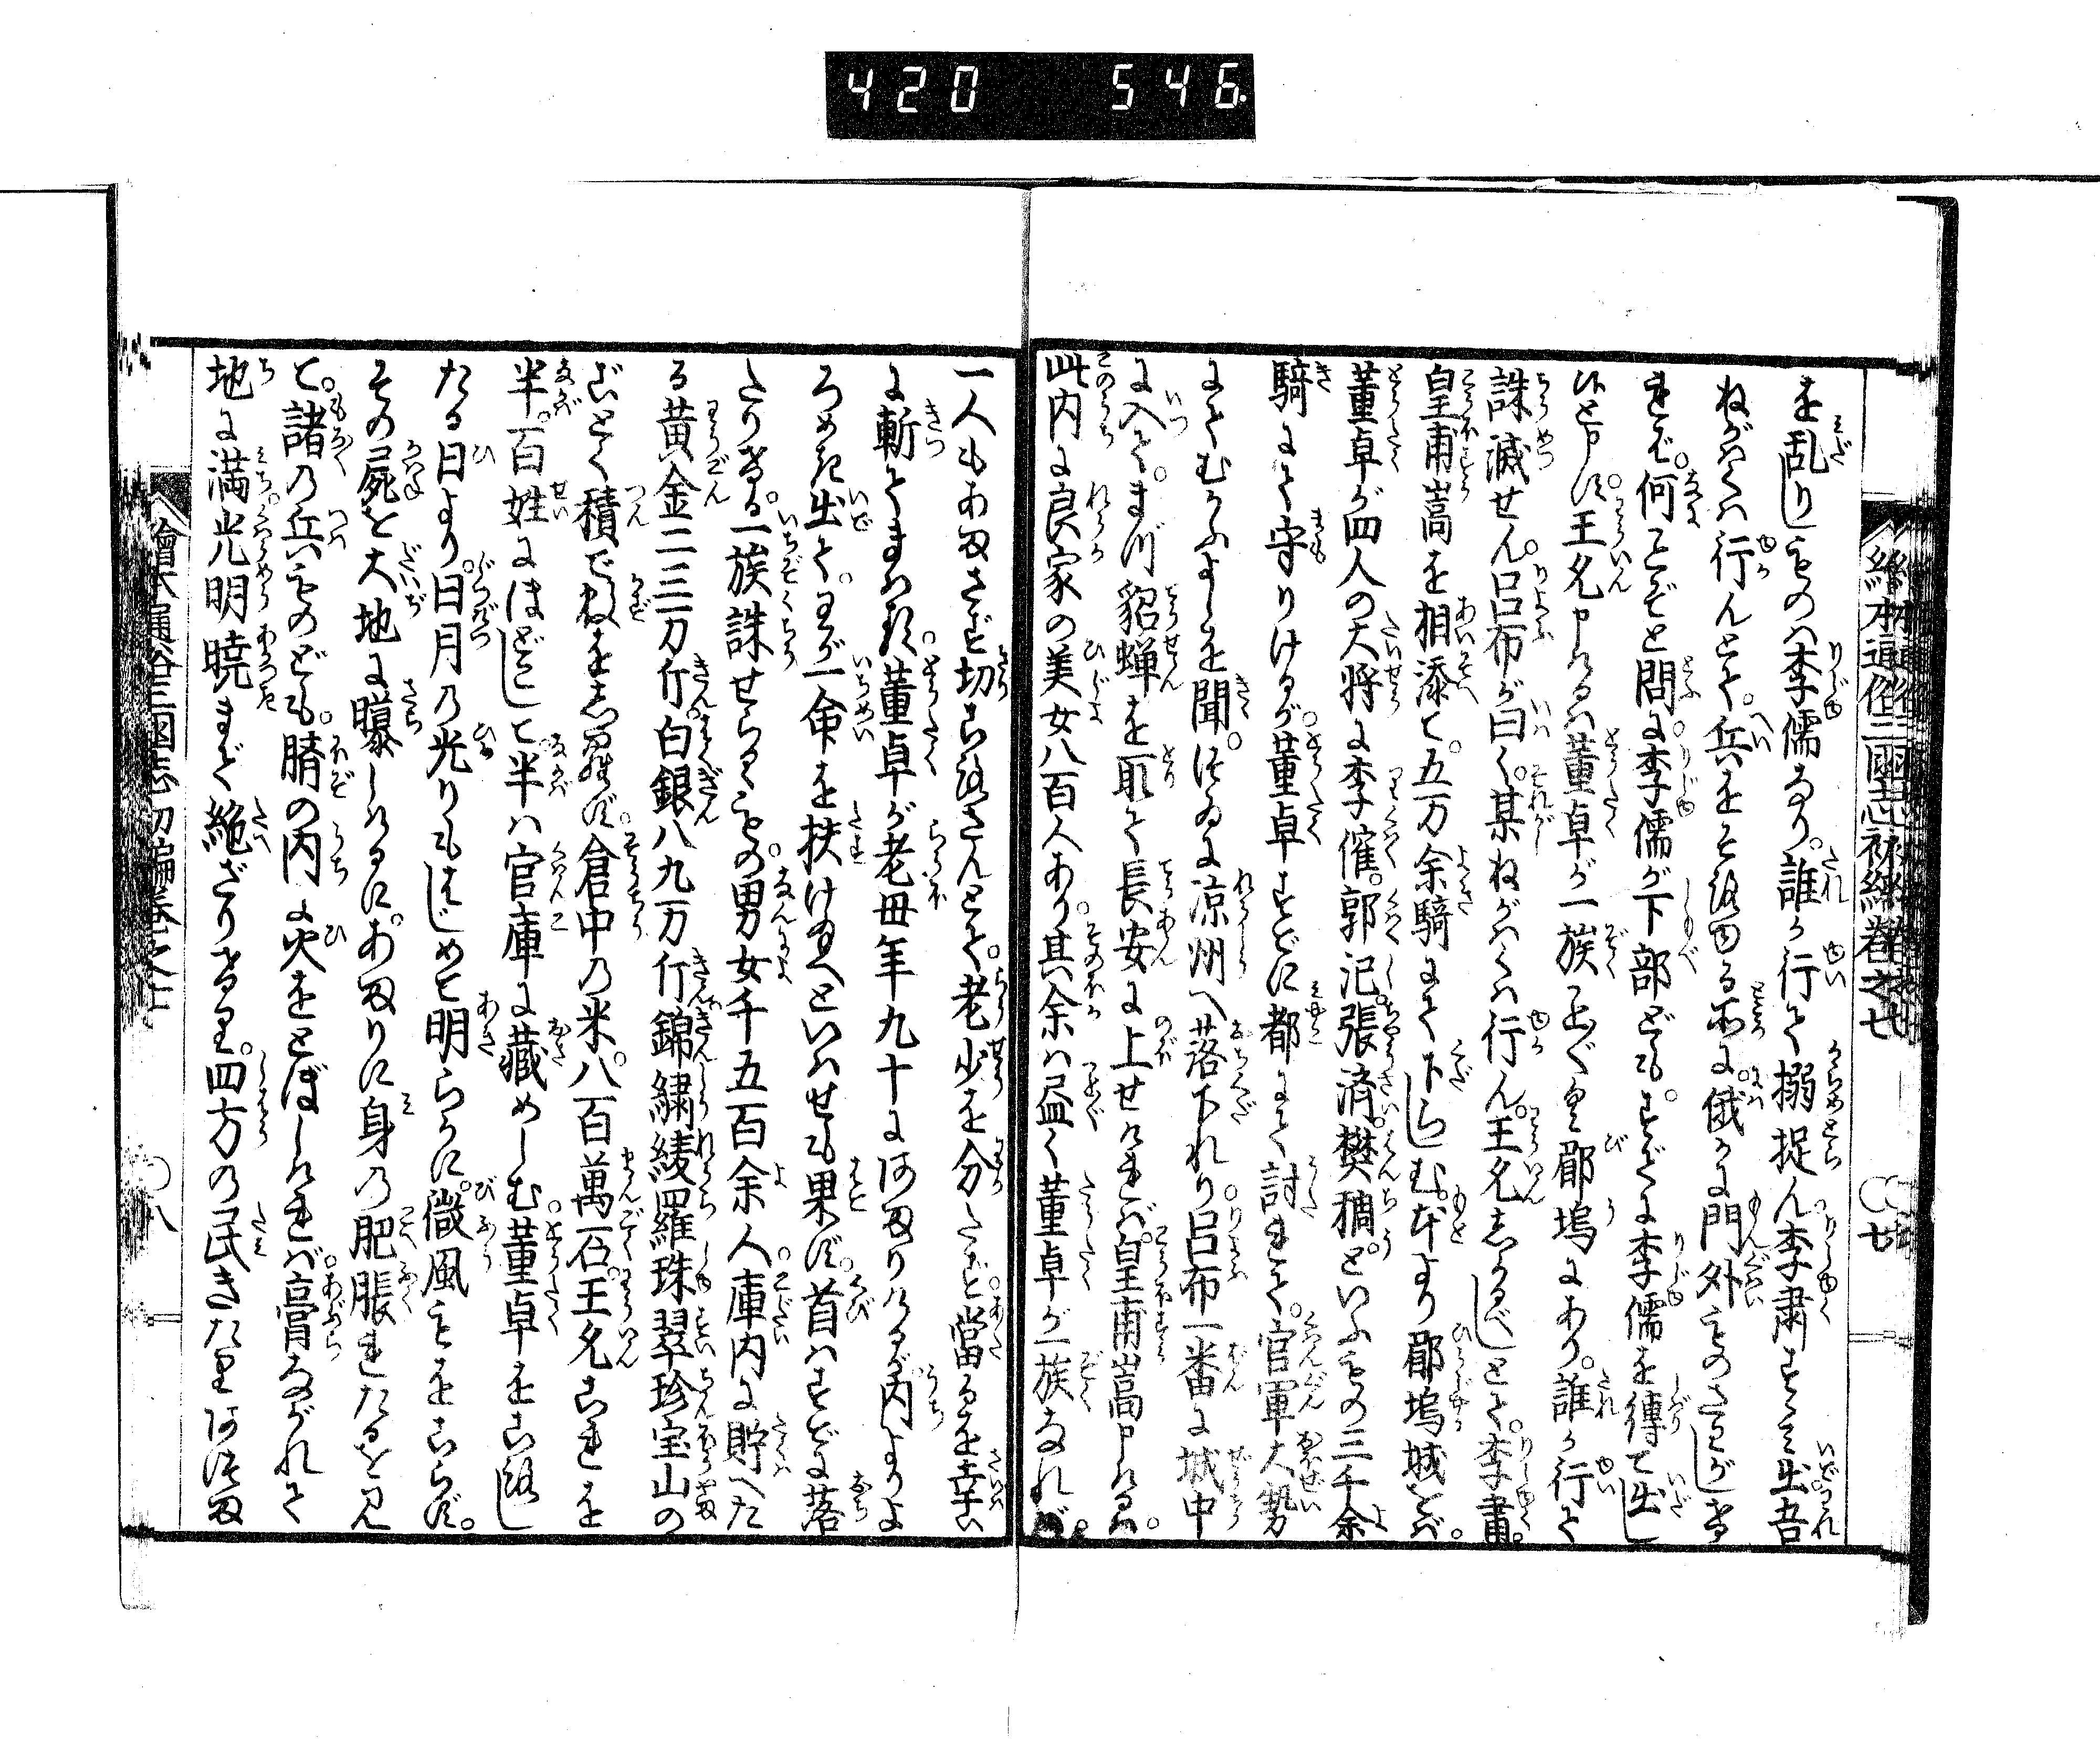 420 546
繪本通俗三國志初編巻之七
七
を乱りしものハ李儒なり。誰か行て搦捉ん李肅すゝミ出吾
ねがハくハ行んとて。兵をそろゆる所に。俄かに門外ものさハがしけ
れバ。何ごとぞと問に。李儒が下部ども。すでに李儒を縛て出し
候と申す。王允申けるハ董卓が一族こと〴〵く郿塢にあり。誰か行て
誅滅せん。呂布が曰く。某ねがハくハ行ん。王允しかるべしとて。李肅。
皇甫嵩を相添て。五万余騎にて下らしむ。本より郿塢城をバ。
董卓が四人の大将に李傕。郭汜。張済。樊稠。といふもの三千余
騎にて守りけるが。董卓すでに都にて討れて。官軍大勢
にてむかふよしを聞。つゐに涼州へ落下れり。呂布一番に城中
に入て。まづ貂蝉を取て長安に上せけれバ。皇甫嵩申けるハ。
此内に良家の美女八百人あり。其余ハ尽く董卓が一族なれバ。
一人もあまさず切ころさんとて。老少を分たず。當るを幸い
に斬てまハる。董卓が老母年九十にあまりけるが。内より
ろめき出て。わが一命を扶け給へといハせも果ず。首ハすでに落
たりける。一族誅せらるゝもの。男女千五百余人。庫内に貯へた
る黄金二三万斤。白銀八九万斤。錦繍綾羅珠翠珍宝山の
ごとく積で数をしらず。倉中の米。八百萬石。王允これを
半。百姓にほどこして。半ハ官庫に藏めしむ。董卓をころし
たる日より。日月の光りもはじめて明らかに。微風もをこらず。
その屍を大地に曝しけるに。あまりに身の肥脹れたるを見
て。諸の兵ものども。臍の内に火をとぼしけれバ。膏ながれて
地に満光明暁まで絶ざりけり。四方の民きたりあつま
繪本通俗三國志初編巻之七
八